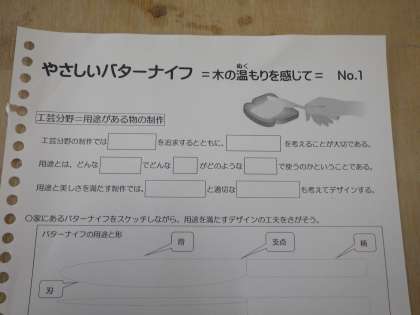 やさしいバターナイフ ＝木の温もりを感じて＝ No.1
ぬく
工芸分野＝用途がある物の制作
工芸分野の制作では を追求するとともに、 を考えることが大切である。
用途とは、どんな でどんな がどのような で使うのかということである。
用途と美しさを満たす制作では、 と適切な も考えてデザインする。
○家にあるバターナイフをスケッチしながら、用途を満たすデザインの工夫をさがそう。
バターナイフの用途と形
支点
柄
刃